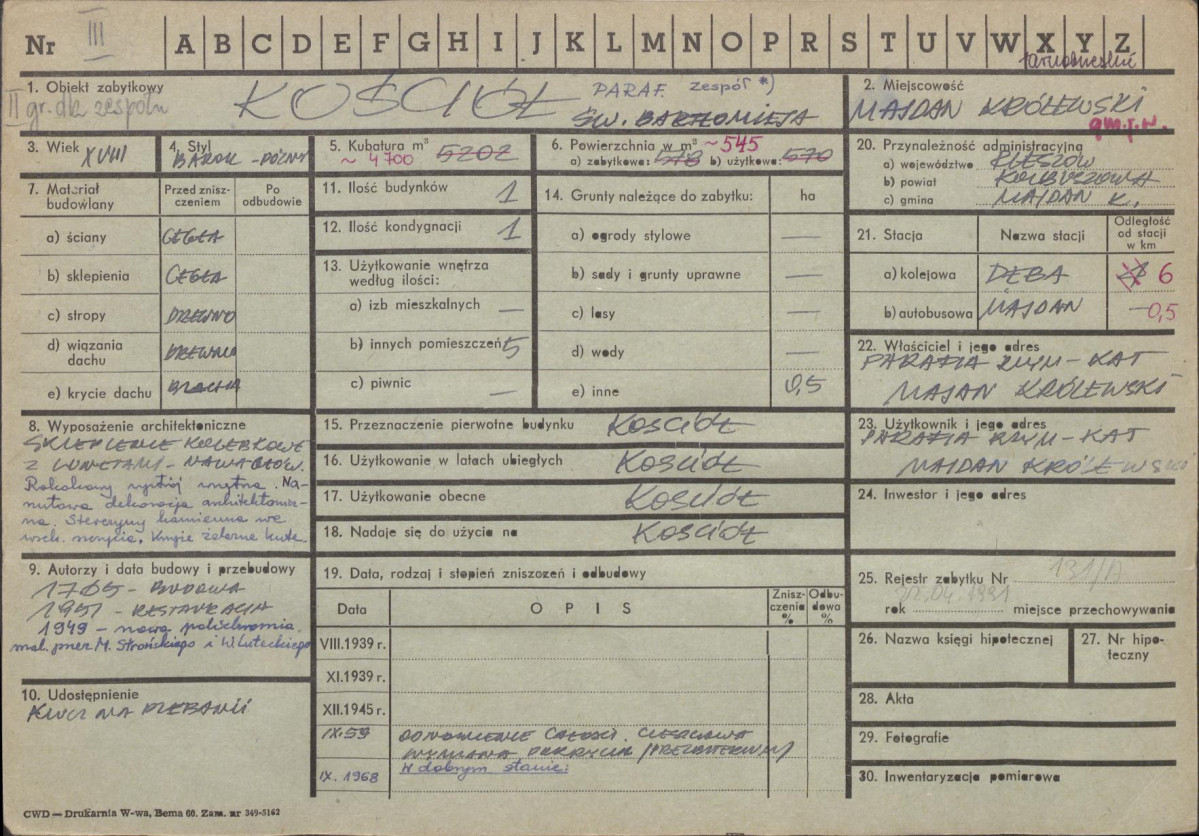 Nr III
A B C D E F G H I J K L M N O P R S T U V W X Y Z
1. Obiekt zabytkowy
II gr. dla zespołu
KOŚCIÓŁ PARAF. zespół *)
ŚW. BARTŁOMIEJA
2. Miejscowość
MAJDAN KRÓLEWSKI
gm. j. w.
3. Wiek XVIII
4. Styl
BAROK - PÓŹNY
5. Kubatura m³
~ 4700 5202
6. Powierzchnia w m² ~545
a) zabytkowa: 578 b) użytkowa: 570
20. Przynależność administracyjna
a) województwo RZESZÓW
b) powiat KOLBUSZOWA
c) gmina MAJDAN K.
7. Materiał budowlany
Przed zniszczeniem
Po odbudowie
a) ściany CEGŁA
b) sklepienia CEGŁA
c) stropy DREWNO
d) wiązania dachu DREWNO
e) krycie dachu BLACHA
11. Ilość budynków 1
12. Ilość kondygnacji 1
13. Użytkowanie wnętrza
według ilości:
a) izb mieszkalnych —
b) innych pomieszczeń 5
c) piwnic —
14. Grunty należące do zabytku: ha
a) ogrody stylowe —
b) sady i grunty uprawne —
c) lasy —
d) wody —
e) inne 0,5
21. Stacja Nazwa stacji Odległość od stacji w km
a) kolejowa DĘBA 6
b) autobusowa MAJDAN 0,5
22. Właściciel i jego adres
PARAFIA RZYM - KAT
MAJAN KRÓLEWSKI
8. Wyposażenie architektoniczne
SKLEPIENIE KOLEBKOWE
Z LUNETAMI - NAWA GŁÓW.
Rokokowy wystrój wnętrza. Na-
rzutowa dekoracja architektonicz-
na. Stacyjny kamienna we
wsch. Kryte żelazne kute.
15. Przeznaczenie pierwotne budynku KOŚCIÓŁ
16. Użytkowanie w latach ubiegłych KOŚCIÓŁ
17. Użytkowanie obecne KOŚCIÓŁ
18. Nadaje się do użycia na KOŚCIÓŁ
23. Użytkownik i jego adres
PARAFIA RZYM - KAT
MAJDAN KRÓLEWSKI
24. Inwestor i jego adres
9. Autorzy i data budowy i przebudowy
1765 - BUDOWA
1951 - RESTAURACJA
1949 - nowa polichromia.
mal. przez M. Strońskiego i W. Luteckiego
19. Data, rodzaj i stopień zniszczeń i odbudowy
Data OPIS Zniszczenia % Odbudowa %
VIII.1939 r.
XI.1939 r.
XII.1945 r.
IX.59 ODNOWIENIE CAŁOŚCI. CZĘŚCIOWA
WYMIANA POKRYCIA (PREZBITERIUM)
IX. 1968 W dobrym stanie.
10. Udostępnienie
KLUCZ NA PLEBANII
25. Rejestr zabytku Nr 131/A
rok 22.04.1991 miejsce przechowywania
26. Nazwa księgi hipotecznej
27. Nr hipoteczny
28. Akta
29. Fotografie
30. Inwentaryzacja pomiarowa
CWD — Drukarnia W-wa, Bema 60. Zam. nr 349-5162